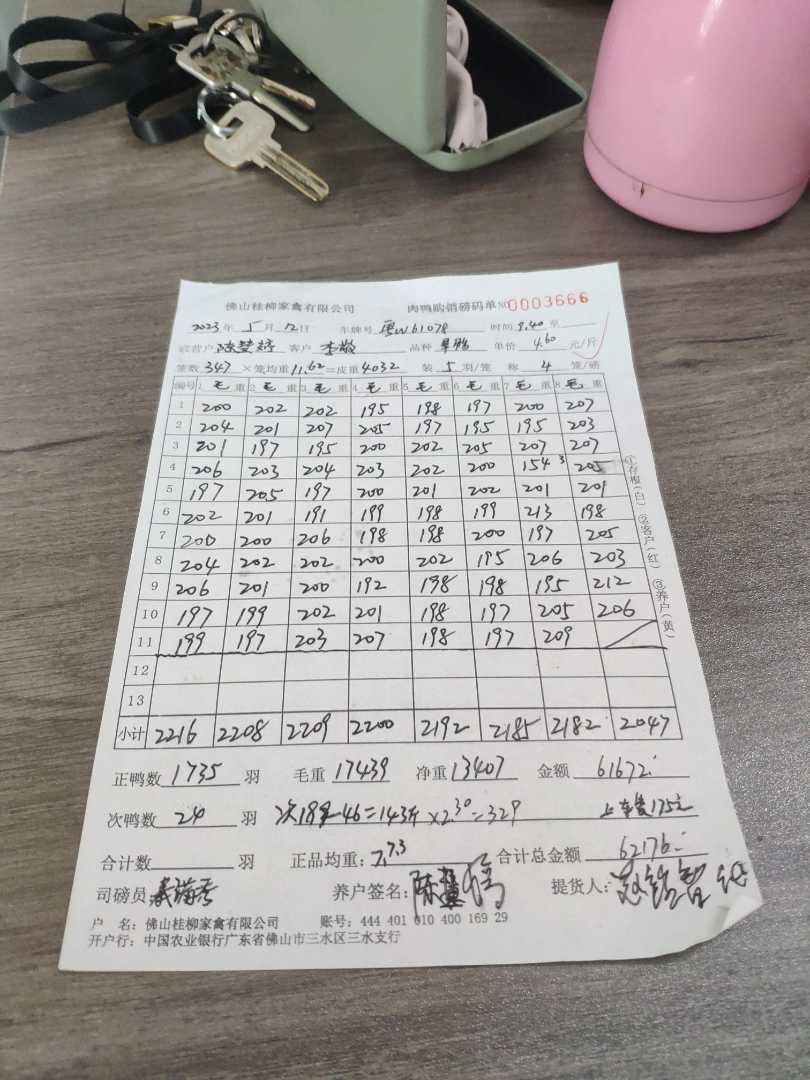 佛山桂柳家禽有限公司 肉鸭购销磅码单 № 0003666
2023年 5月 12日 车牌号 粤W61078 时间 9.40 至
客户 李敬 品种 单价 4.60 元/斤
笼数 347 ×笼均重 11.62 =皮重 4032 装 5 羽/笼 称 4 笼/磅
编号 1 毛 重 2 毛 重 3 毛 重 4 毛 重 5 毛 重 6 毛 重 7 毛 重 8 毛 重
1 200 202 202 195 198 197 200 207
2 204 201 207 205 197 195 195 203
3 201 197 195 200 202 205 207 207
4 206 203 204 203 202 200 154 3 205
5 197 205 197 200 201 202 201 201
6 202 201 191 199 198 199 213 198
7 200 200 206 198 198 200 197 205
8 204 202 202 200 202 195 206 203
9 206 201 200 192 198 198 195 212
10 197 199 202 201 198 197 205 206
11 199 197 203 207 198 197 209
12
13
小计 2216 2208 2209 2200 2192 2185 2182 2047
①存根(白) ②客户(红) ③养户(黄)
正鸭数 1735 羽 毛重 17439 净重 13407 金额 61672
次鸭数 24 羽 次189-46=143斤×2.30=329 上车费175元
合计数 羽 正品均重: 7.73 合计总金额 62176
司磅员 养户签名: 陈 提货人:
户 名: 佛山桂柳家禽有限公司 账号: 444 401 010 400 169 29
开户行: 中国农业银行广东省佛山市三水区三水支行